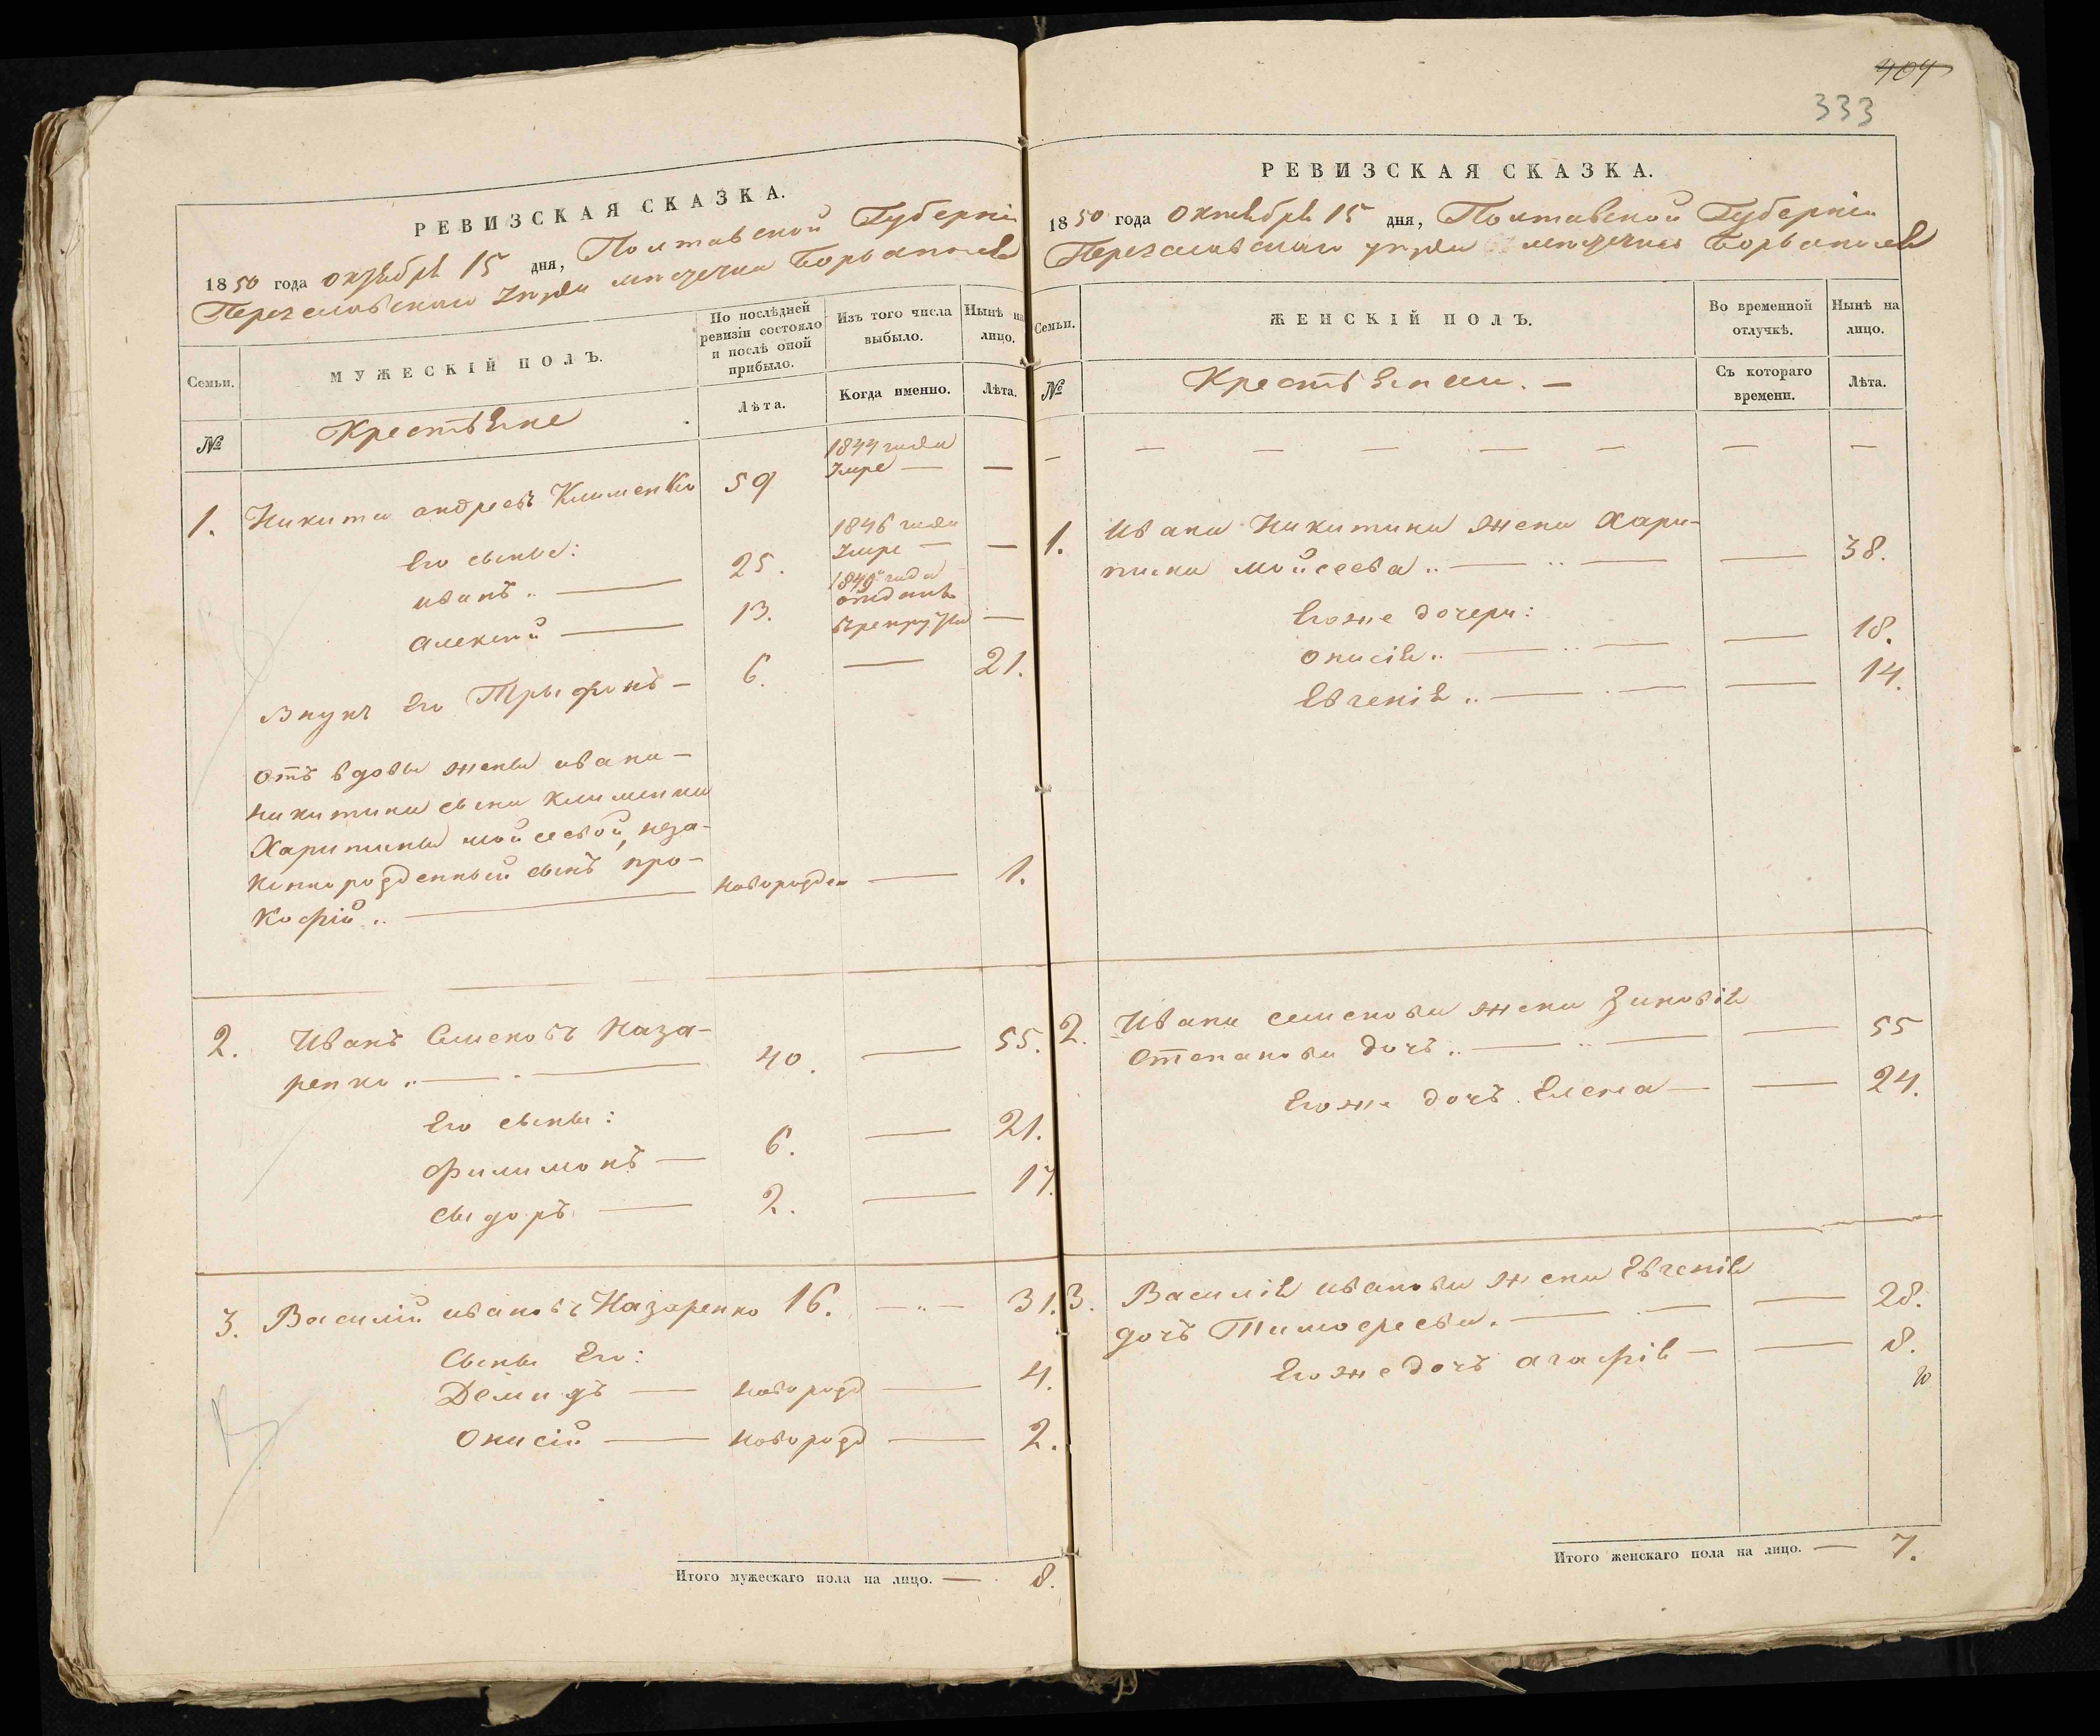 РЕВИЗСКАЯ СКАЗКА.
1850 года октября 15 дня, Полтавской Губерніи
Переяславскаго уезда местечка Борисполя
Семьи.
МУЖЕСКІЙ ПОЛЪ.
По послѣдней ревизіи состояло и послѣ оной прибыло.
Изъ того числа выбыло.
Нынѣ на лицо.
№
Крестьяне
Лѣта.
Когда именно.
Лѣта.
1. Никита андреевъ Клименко 59 1844 года умре — —
Его сыны:
иванъ .. — 25. 1846 года умре — —
алексей — 13. 1849 года отданъ в рекруты —
Внукъ Его Трыфонъ — 6. — 21.
Отъ вдовы жены ивана
никитина сына клименка
Харитины мойсеевой, неза-
коннорожденный сынъ про-
кофій .. — новорожден — 1.
2. Иванъ Семеновъ Наза-
ренко .. — 40. — 55.
Его сыны:
филимонъ — 6. — 21.
сыдоръ — 2. — 17.
3. Василій ивановъ Назаренко 16. — 31.
Сыны Его:
Демидъ — новорожд — 4.
Онисій — новорожд — 2.
Итого мужескаго пола на лицо. — 8.
404
333
РЕВИЗСКАЯ СКАЗКА.
1850 года октября 15 дня, Полтавской Губерніи
Переяславскаго уезда местечка Борисполя
Семьи.
ЖЕНСКІЙ ПОЛЪ.
Во временной отлучкѣ.
Нынѣ на лицо.
№
Крестьянки. —
Съ котораго времени.
Лѣта.
— — — — — — — —
1. Ивана Никитина жена Хари-
тина мойсеева .. — — 38.
Егоже дочери:
онисія .. — — 18.
Евгенія .. — — 14.
2. Ивана семенова жена Зиновія
степанова дочъ .. — — 55
Егоже дочъ Елена — — 24.
3. Василія иванова жена Евгенія
дочъ Тимофеева. — — 28.
Егоже дочъ агафія — — 8.
Итого женскаго пола на лицо. — 7.